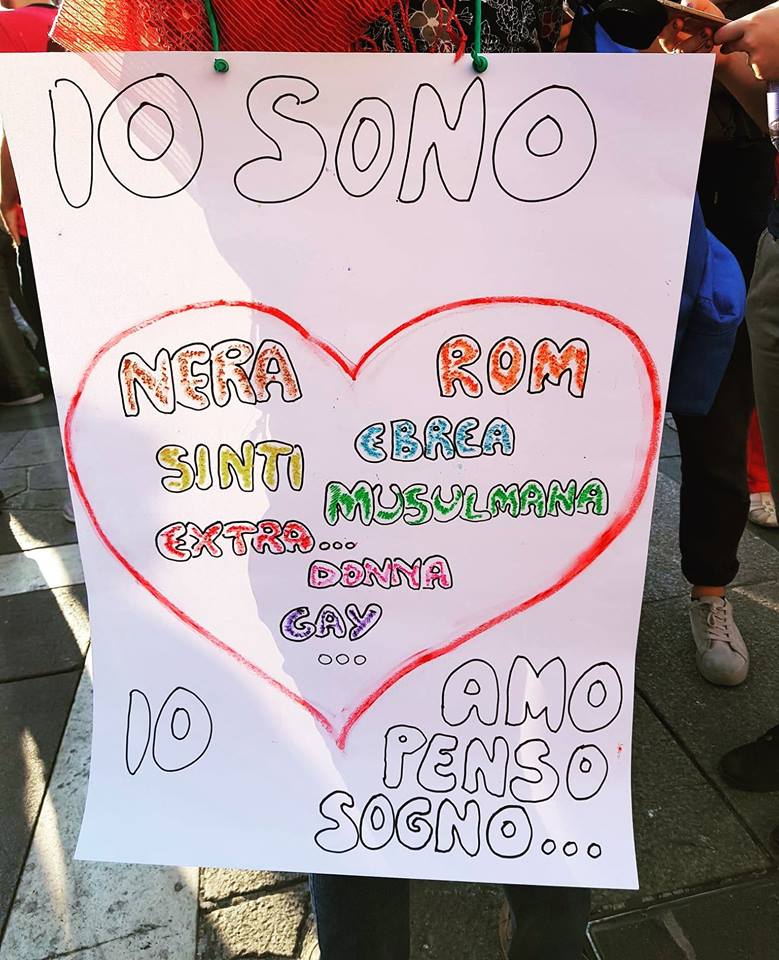 IO SONO
NERA ROM
SINTI EBREA
MUSULMANA
EXTRA...
DONNA
GAY
...
IO AMO
PENSO
SOGNO...